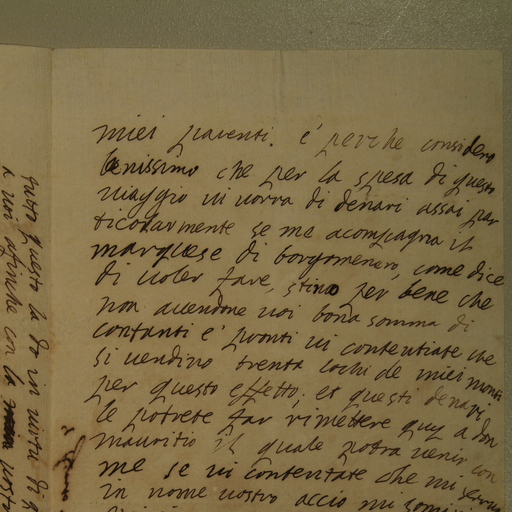 miei parenti. e' perche considero
benissimo che per la spesa di questo
viaggio vi vorra di denari assai par
ticolarmente se me acompagna il
marquese di borgomenero, come dice
di voler fare, stimo per bene che
non avendone voi bona somma di
contanti e' pronti vi contentiate che
si vendino trenta lochi de miei monti
per questo effetto, et questi denari
le potrete far rimettere quy a don
mauritio il quale potra venir con
me se vi contentate che mi serva
in nome vostro accio mi
questo la do in virtu di
a voi afinche con la vostr